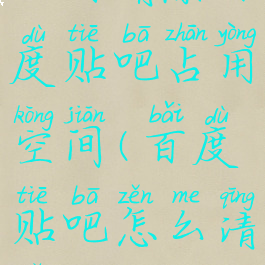 dù tiē bā zhān yòng
度贴吧占用
kōng jiān bǎi dù
空间(百度
tiē bā zěn me qīng
贴吧怎么清